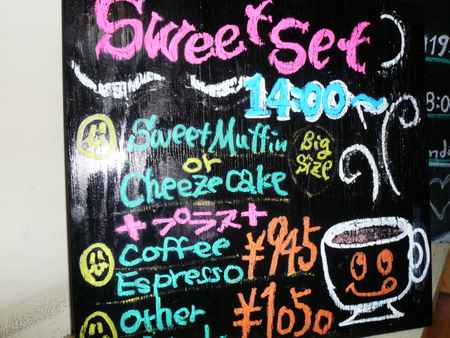 Sweet Set
14:00~
Sweet Muffin
or
Cheeze cake
Big
Size
+プラス+
Coffee
Espresso
¥945
Other
¥1050